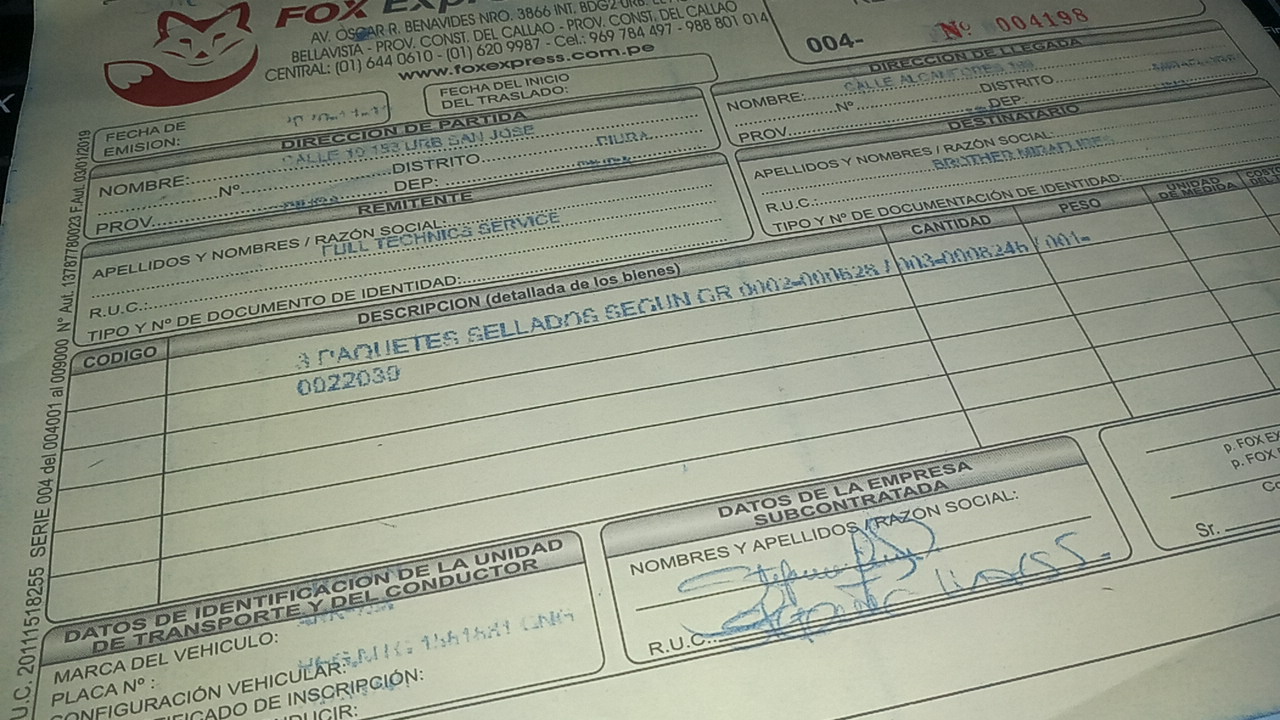 FOX
AV. OSCAR R. BENAVIDES NRO. 3866 INT. BDG2 URB.
BELLAVISTA - PROV. CONST. DEL CALLAO - PROV. CONST. DEL CALLAO
CENTRAL: (01) 644 0610 - (01) 620 9987 - Cel.: 969 784 497 - 988 801 014
www.foxexpress.com.pe
004- Nº 004198
FECHA DE
EMISION:
FECHA DEL INICIO
DEL TRASLADO:
DIRECCION DE PARTIDA
CALLE 10 153 URB SAN JOSE
NOMBRE:
Nº DISTRITO PIURA
PROV. DEP.
DIRECCION DE LLEGADA
NOMBRE: CALLE
Nº DISTRITO
PROV. DEP.
REMITENTE
APELLIDOS Y NOMBRES / RAZÓN SOCIAL:
FULL TECHNICS SERVICE
R.U.C.:
TIPO Y Nº DE DOCUMENTO DE IDENTIDAD:
DESTINATARIO
APELLIDOS Y NOMBRES / RAZÓN SOCIAL:
BROTHER
R.U.C.:
TIPO Y Nº DE DOCUMENTACIÓN DE IDENTIDAD:
CODIGO DESCRIPCION (detallada de los bienes) CANTIDAD PESO UNIDAD DE MEDIDA
3 PAQUETES SELLADOS SEGUN GR 0002-000628 / 003-0008246 / 001-
0022039
DATOS DE IDENTIFICACION DE LA UNIDAD
DE TRANSPORTE Y DEL CONDUCTOR
MARCA DEL VEHICULO:
PLACA Nº :
CONFIGURACIÓN VEHICULAR:
DE INSCRIPCIÓN:
DATOS DE LA EMPRESA
SUBCONTRATADA
NOMBRES Y APELLIDOS / RAZÓN SOCIAL:
R.U.C.:
p. FOX
p. FOX
Sr.
U.C. 20111518255 SERIE 004 del 004001 al 009000 Nº Aut. 13787780023 F.Aut. 03/01/2019